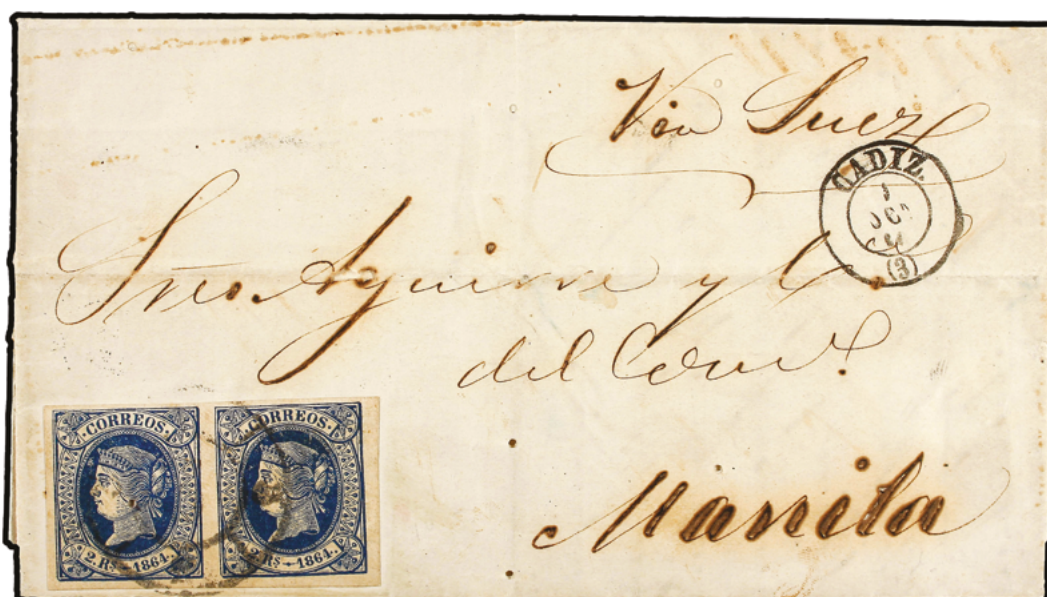 Via Suez
CADIZ.
(3)
Sres. Aguirre y C.
del Com.º
Manila
CORREOS
2. Rs. 1864.
CORREOS
2. Rs. 1864.